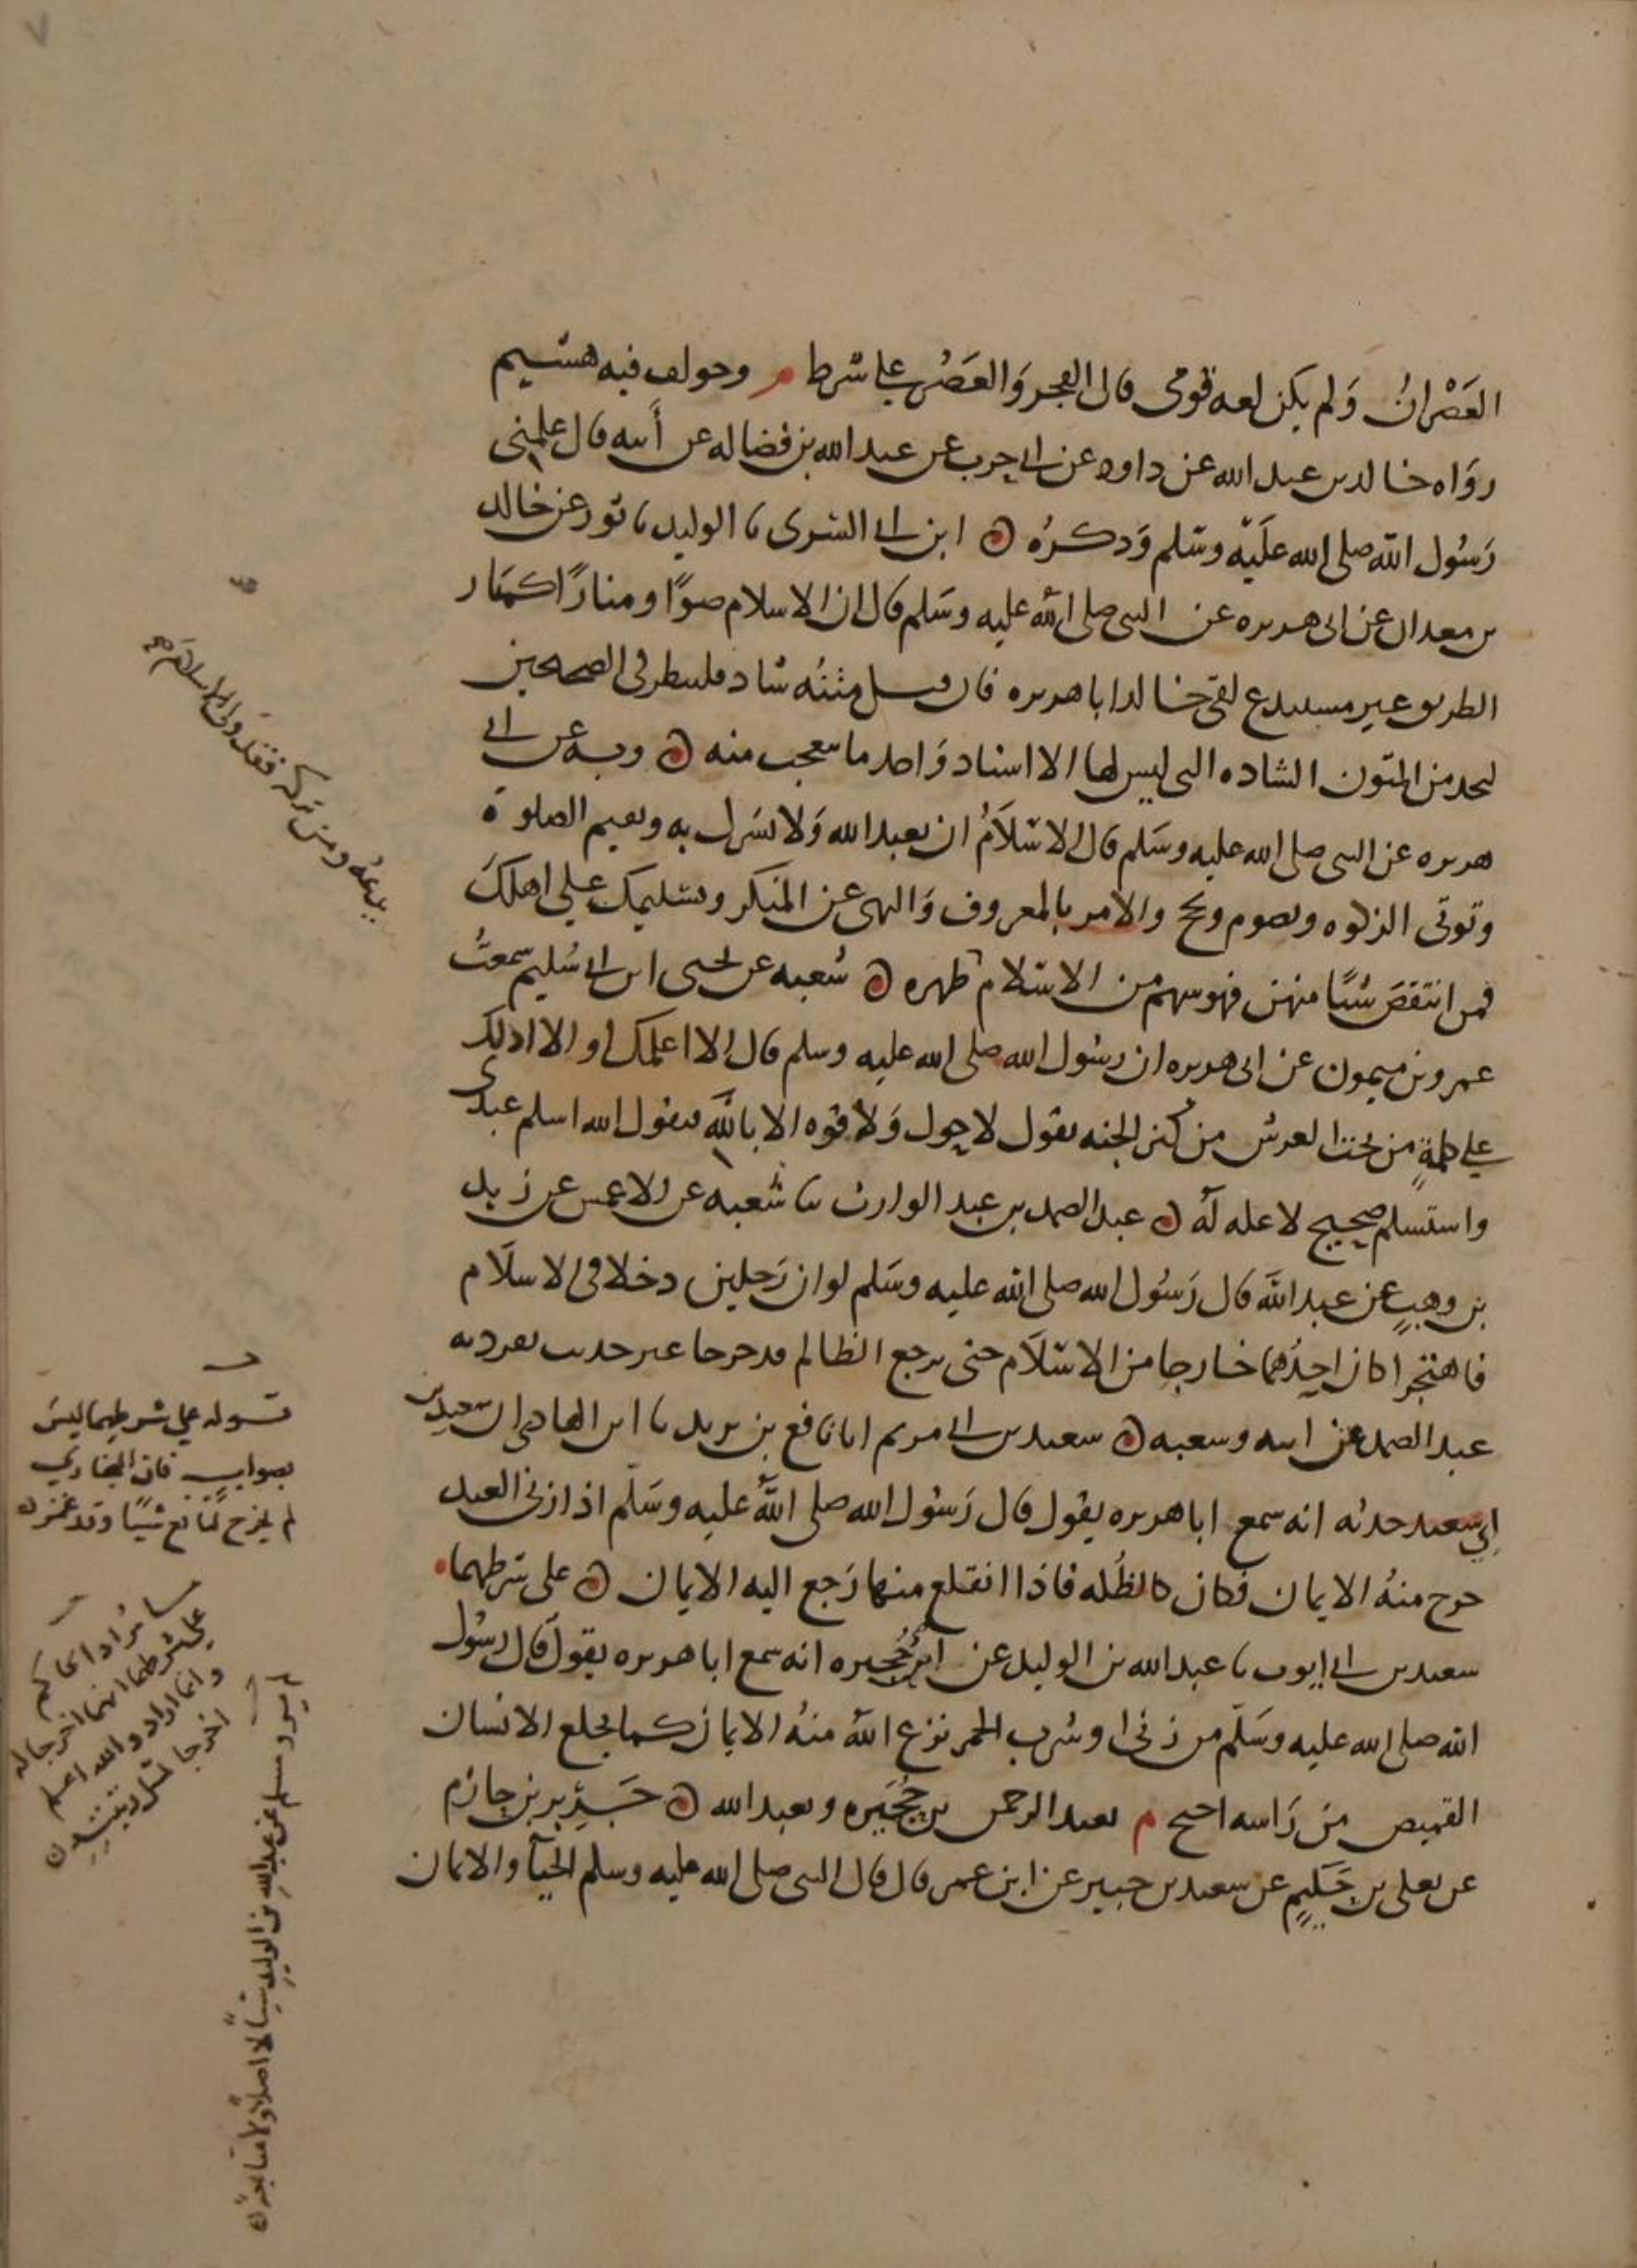 العَصْرانُ وَلم يكن لعه قومى قال الفجر وَالعَصْر على شرط م وخولف فيه هشيم
روَاه خالد بن عبد الله عن داود عن ابى حرب عن عبد الله بن فضاله عن أبيه قال علمنى
رَسُول الله صلى الله عليه وسَلم وَذكرهُ ابن ابى السرى نا الوليد نا ثور عن خالد
بن معدان عن ابى هريره عن النبى صلى الله عليه وسَلم قال ان للاسلام صوًا ومنارًا كمنار
الطريق غير مستبدع لقى خالد ابا هريره فان قيل متنُه شاذ فلينظر فى الصحيحين
ليجد من المتون الشاذه التى ليس لها الا اسناد وَاحد ما يتعجب منه وبه عن ابى
هريره عن النبى صلى الله عليه وسَلم قال الاسلاَمُ ان تعبد الله وَلا تشرك به وتقيم الصلوة
وتوتى الزكوه وتصوم وتحج والامر بالمعروف وَالنهى عن المنكر وتسليمك على اهلكَ
فمن انتقصَ شيًا منهن فهو سهم من الاسلام ظهره شعبه عن يحيى ابن ابى سُليم سمعتُ
عمرو بن ميمون عن ابى هريره ان رسُول الله صلى الله عليه وسلم قال الا اعلمك او الا ادلك
على كلمةٍ من تحت العرش من كنز الجنه تقول لا حول وَلا قوه الا بالله فيقول الله اسلم عبدى
واستسلم صحيح لا علة لَه عبد الصمد بن عبد الوارث نا شعبه عن الاعمش عن زيد
بن وهبٍ عن عبد الله قال رَسُول الله صلى الله عليه وسَلم لو ان رَجلين دخلا فى الاسلاَم
فاهتجرا كان احدُهما خارجا من الاسلاَم حتى يرجع الظالم قد خرجا غير حديث تفرد به
عبد الصمد عن ابيه وشعبه سعيد بن ابى مريم انا نافع بن يزيد نا ابن الهاد ان سعيد بن
ابى سعيد حدثه انه سمع ابا هريره يقول قال رَسُول الله صلى الله عليه وسَلم اذا زنى العبد
خرج منهُ الايمان فكان كالظُله فاذا انقلع منها رَجع اليه الايمان على شرطهما
سعيد بن ابى ايوب نا عبد الله بن الوليد عن ابن حُجيره انه سمع ابا هريره يقول قال رسُول
الله صلى الله عليه وسَلم من زنى او شرب الخمر نزع الله منهُ الايمان كما يخلع الانسان
القميص من رَاسه احتج م بعبد الرحمن بن حُجَيره وبعبد الله جَرير بن حازم
عن يعلى بن حَكيمٍ عن سعيد بن جبير عن ابن عمر قال قال النبى صلى الله عليه وسلم الحيآ والايمان
يدعهُ ومن تركهن فقد ولى الاسلاَم
قوله على شرطهما ليسَ
بصوابٍ فان البخاري
لم يخرج لنافع شيئًا وقد غمز
مُراد الحاكم
على شرطهما انهما اخرجا له
وانما اراد والله اعلم
اخرجا
لم يرو مسلم عن عبدِ الله بن الوليدِ شيئًا لا اصلاً ولا متابعةً